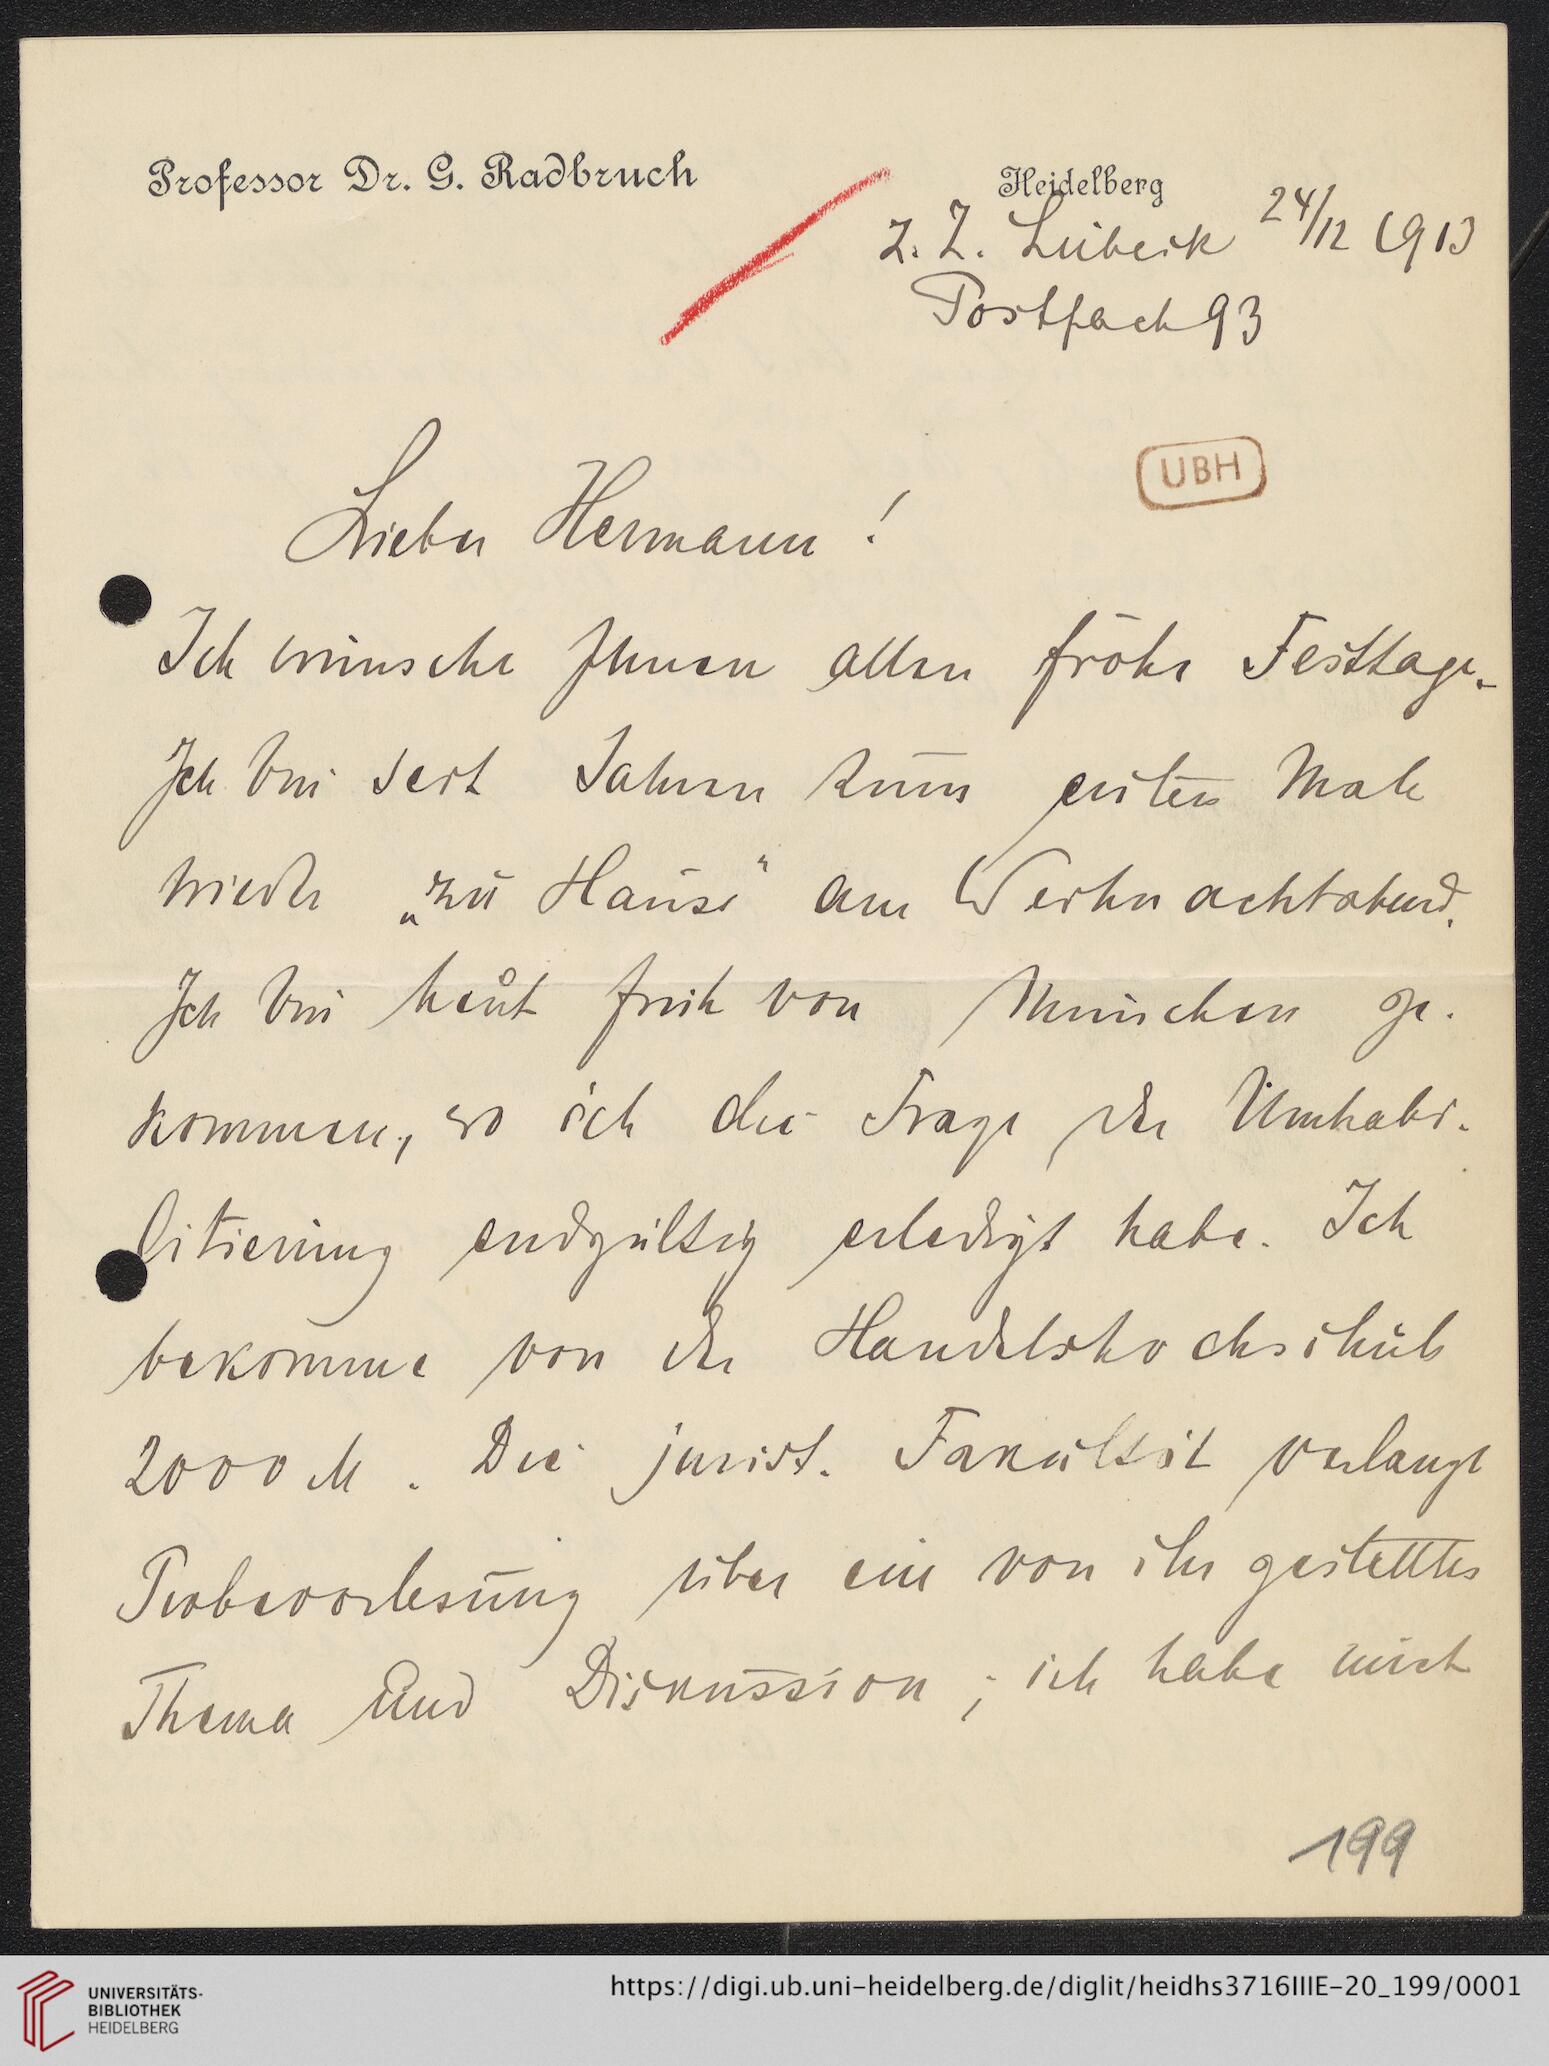 Professor Dr. G. Radbruch
Heidelberg
z. Z. Lübeck 24/12 1913
Postfach 93
UBH
Lieber Hermann!
Ich wünsche Ihnen allen frohe Festtage.
Ich bin seit Jahren zum ersten Male
wieder „zu Hause“ am Weihnachtabend.
Ich bin heut früh von München ge-
kommen, wo ich die Frage der Umhabi-
litierung endgültig erledigt habe. Ich
bekomme von der Handelshochschule
2000 M. Die jurist. Fakultät verlangt
Probevorlesung über ein von ihr gestelltes
Thema und Diskussion; ich habe mich
199
UNIVERSITÄTS-
BIBLIOTHEK
HEIDELBERG
https://digi.ub.uni-heidelberg.de/diglit/heidhs3716IIIE-20_199/0001